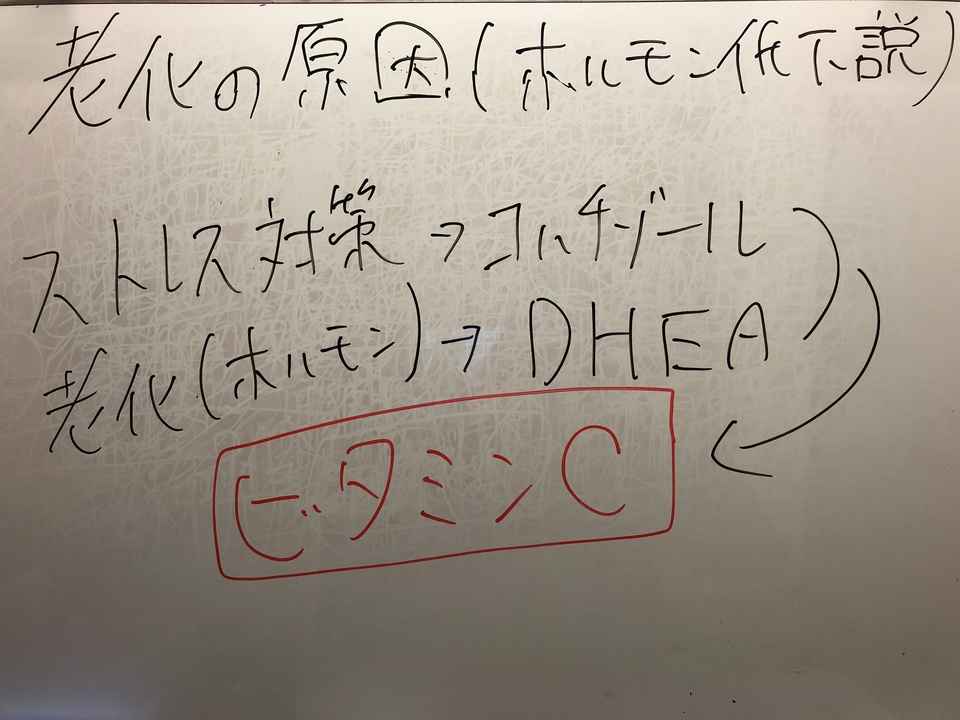 老化の原因(ホルモン低下説)
ストレス対策→コルチゾール
老化(ホルモン)→DHEA
ビタミンC